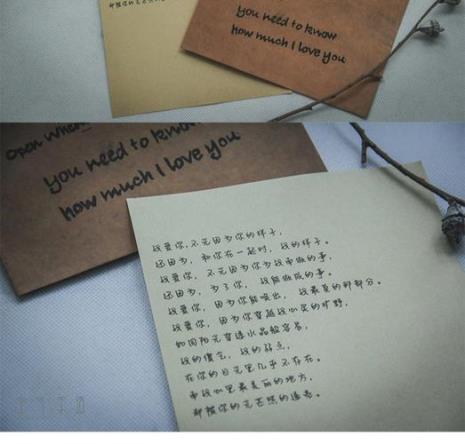 you need to know
how much I love you
open when
you need to know
how much I love you
我爱你,不光因为你的样子,
还因为,和你在一起时,我的样子。
我爱你,不光因为你为我而做的事,
还因为,为了你,我能做成的事。
我爱你,因为你能唤出,我最真的那部分。
我爱你,因为你穿越我心灵的旷野,
如同阳光穿透水晶般容易,
我的傻气,我的弱点,
在你的目光里几乎不存在。
而我心里最美丽的地方,
却被你的光芒照的通亮。